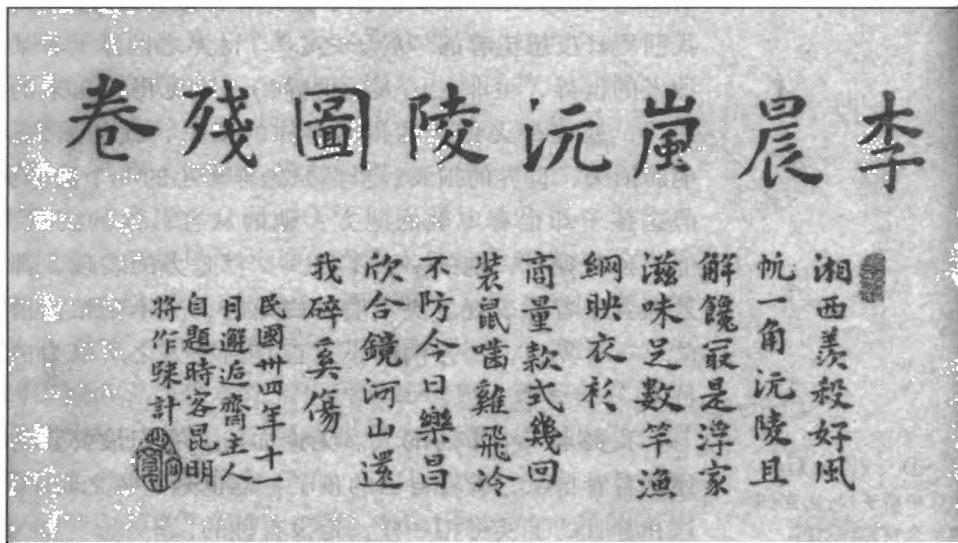 李晨嵐沅陵圖殘卷
湘西羨殺好風
帆一角沅陵且
解饞冣是浮家
滋味足數竿漁
網映衣衫
商量款式幾回
裝鼠嚙雞飛冷
不防今日樂昌
欣合鏡河山還
我碎奚傷
民國卅四年十一
月邂逅齋主人
自題時客昆明
將作歸計